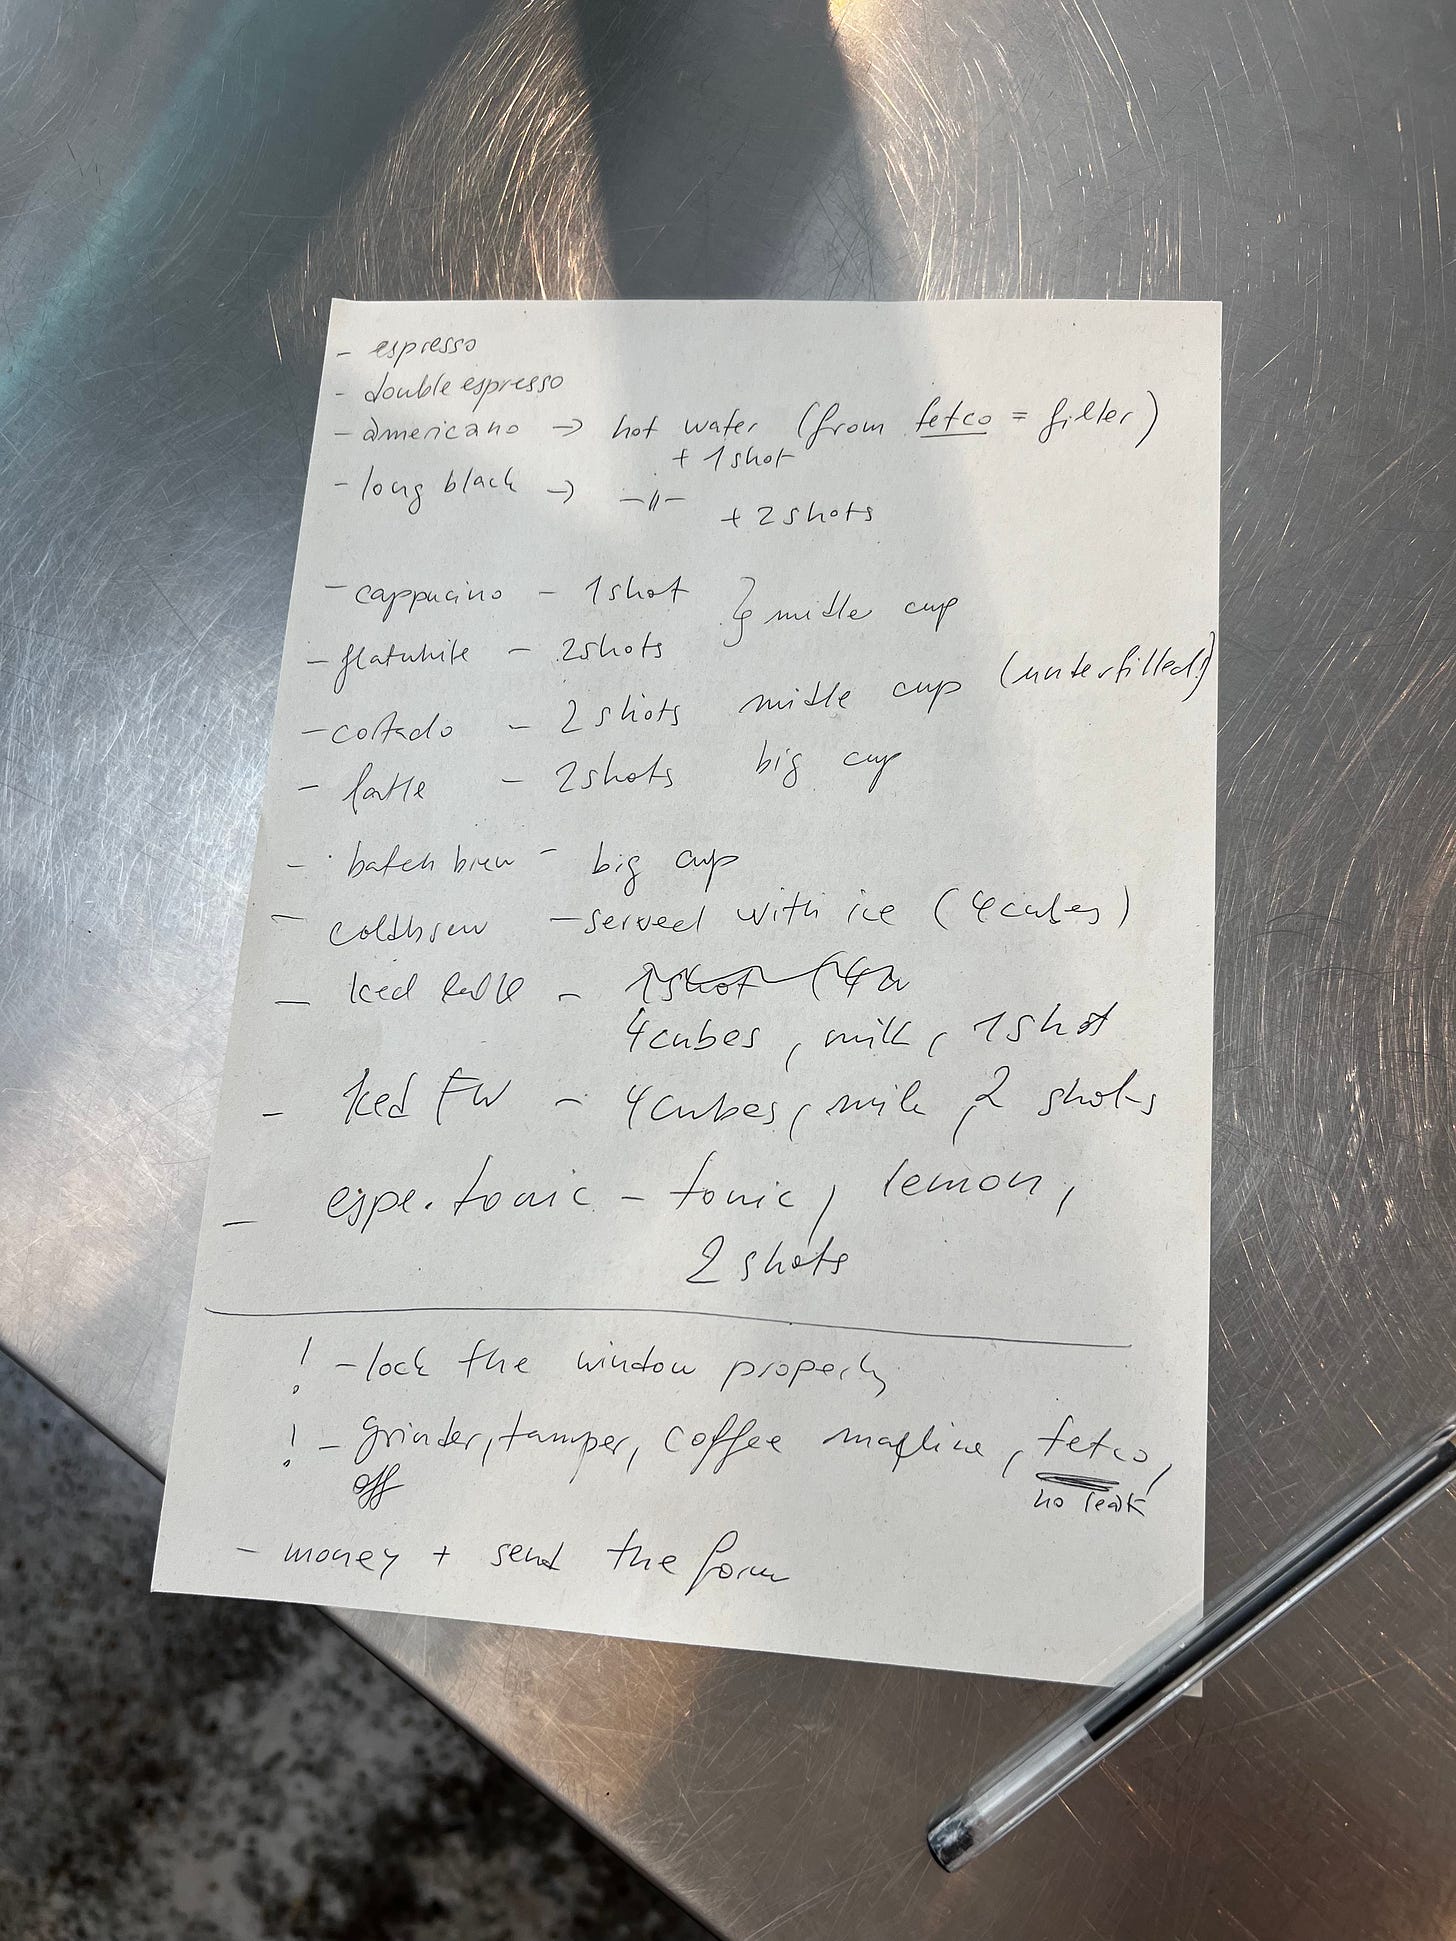 - espresso
- double espresso
- americano → hot water (from fetco = filter)
+ 1 shot
- long black → -॥- + 2 shots
- cappucino - 1 shot } midle cup
- flatwhite - 2 shots
- cortado - 2 shots midle cup (underfilled!)
- latte - 2 shots big cup
- batch brew - big cup
- coldbrew - served with ice (4 cubes)
- Iced latte -
4 cubes, milk, 1 shot
- Iced FW - 4 cubes, milk, 2 shots
- espr. tonic - tonic, lemon,
2 shots
! - lock the window properly
! - grinder, tamper, coffee machine, fetco,
off no leak
- money + send the form